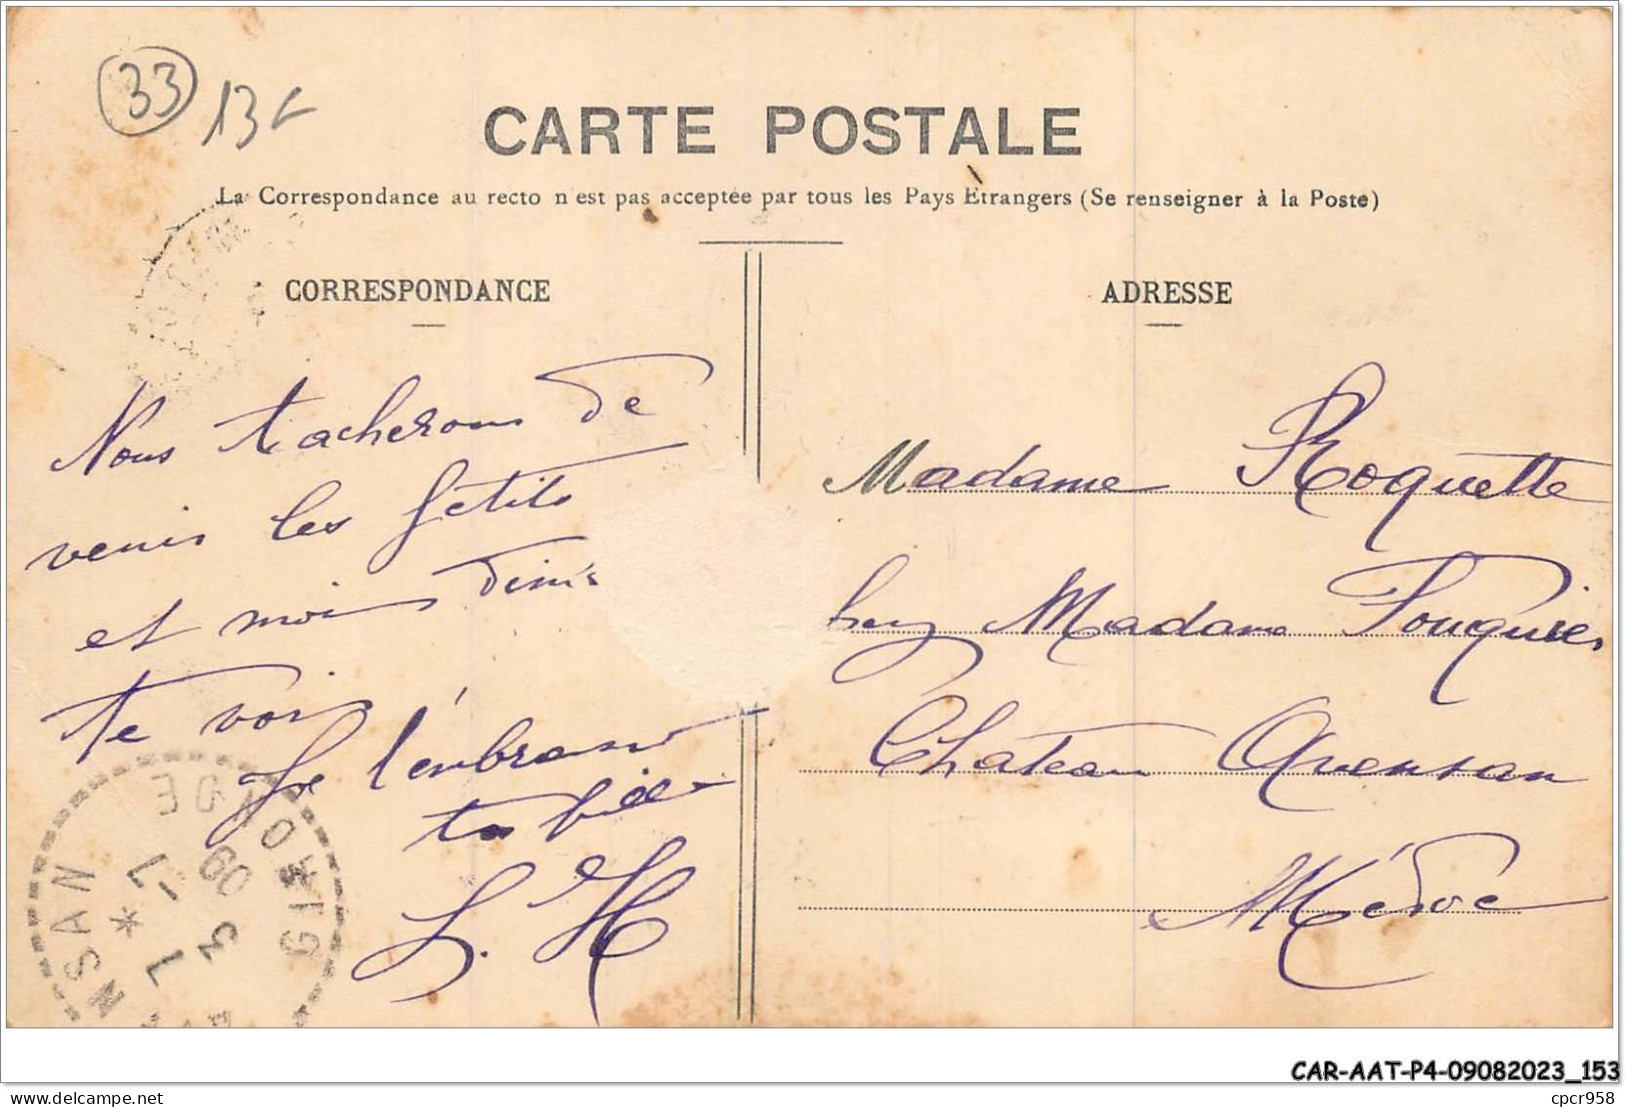 33 13€
CARTE POSTALE
La Correspondance au recto n'est pas acceptée par tous les Pays Etrangers (Se renseigner à la Poste)
CORRESPONDANCE
Nous tacherons de
venir les petits
et moi
te voir
Je t'embrasse
ta fille
L. H
ADRESSE
Madame Roquette
chez Madame Fouquier
Chateau Avensan
Médoc
GIRONDE
NSAN
CAR-AAT-P4-09082023_153
delcampe.net
cpcr958